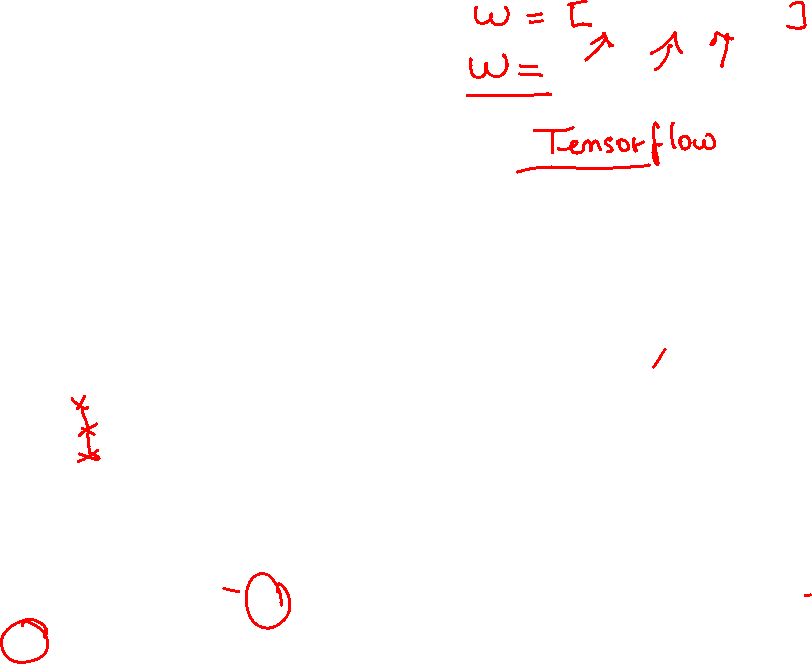 W = [ ]
W =
Tensorflow